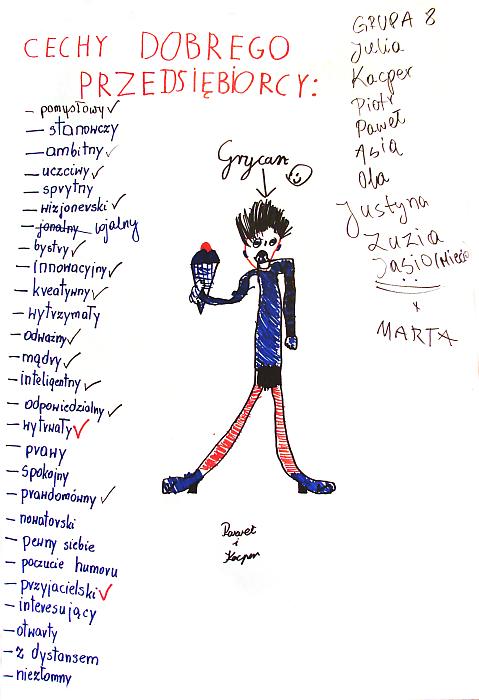 CECHY DOBREGO
PRZEDSIĘBIORCY:
– pomysłowy ✓
– stanowczy
– ambitny ✓
– uczciwy ✓
– sprytny
– wizjonerski ✓
– jonalny lojalny
– bystry ✓
– innowacyjny ✓
– kreatywny ✓
– wytrzymały
– odważny ✓
– mądry ✓
– inteligentny ✓
– odpowiedzialny ✓
– wytrwały ✓
– prawy
– spokojny
– prawdomówny ✓
– nowatorski
– pewny siebie
– poczucie humoru
– przyjacielski ✓
– interesujący
– otwarty
– z dystansem
– niezłomny
Grycan
Paweł
i
Kacper
GRUPA 8
Julia
Kacper
Piotr
Paweł
Asia
Ola
Justyna
Zuzia
Jasio (Miecio
x
MARTA